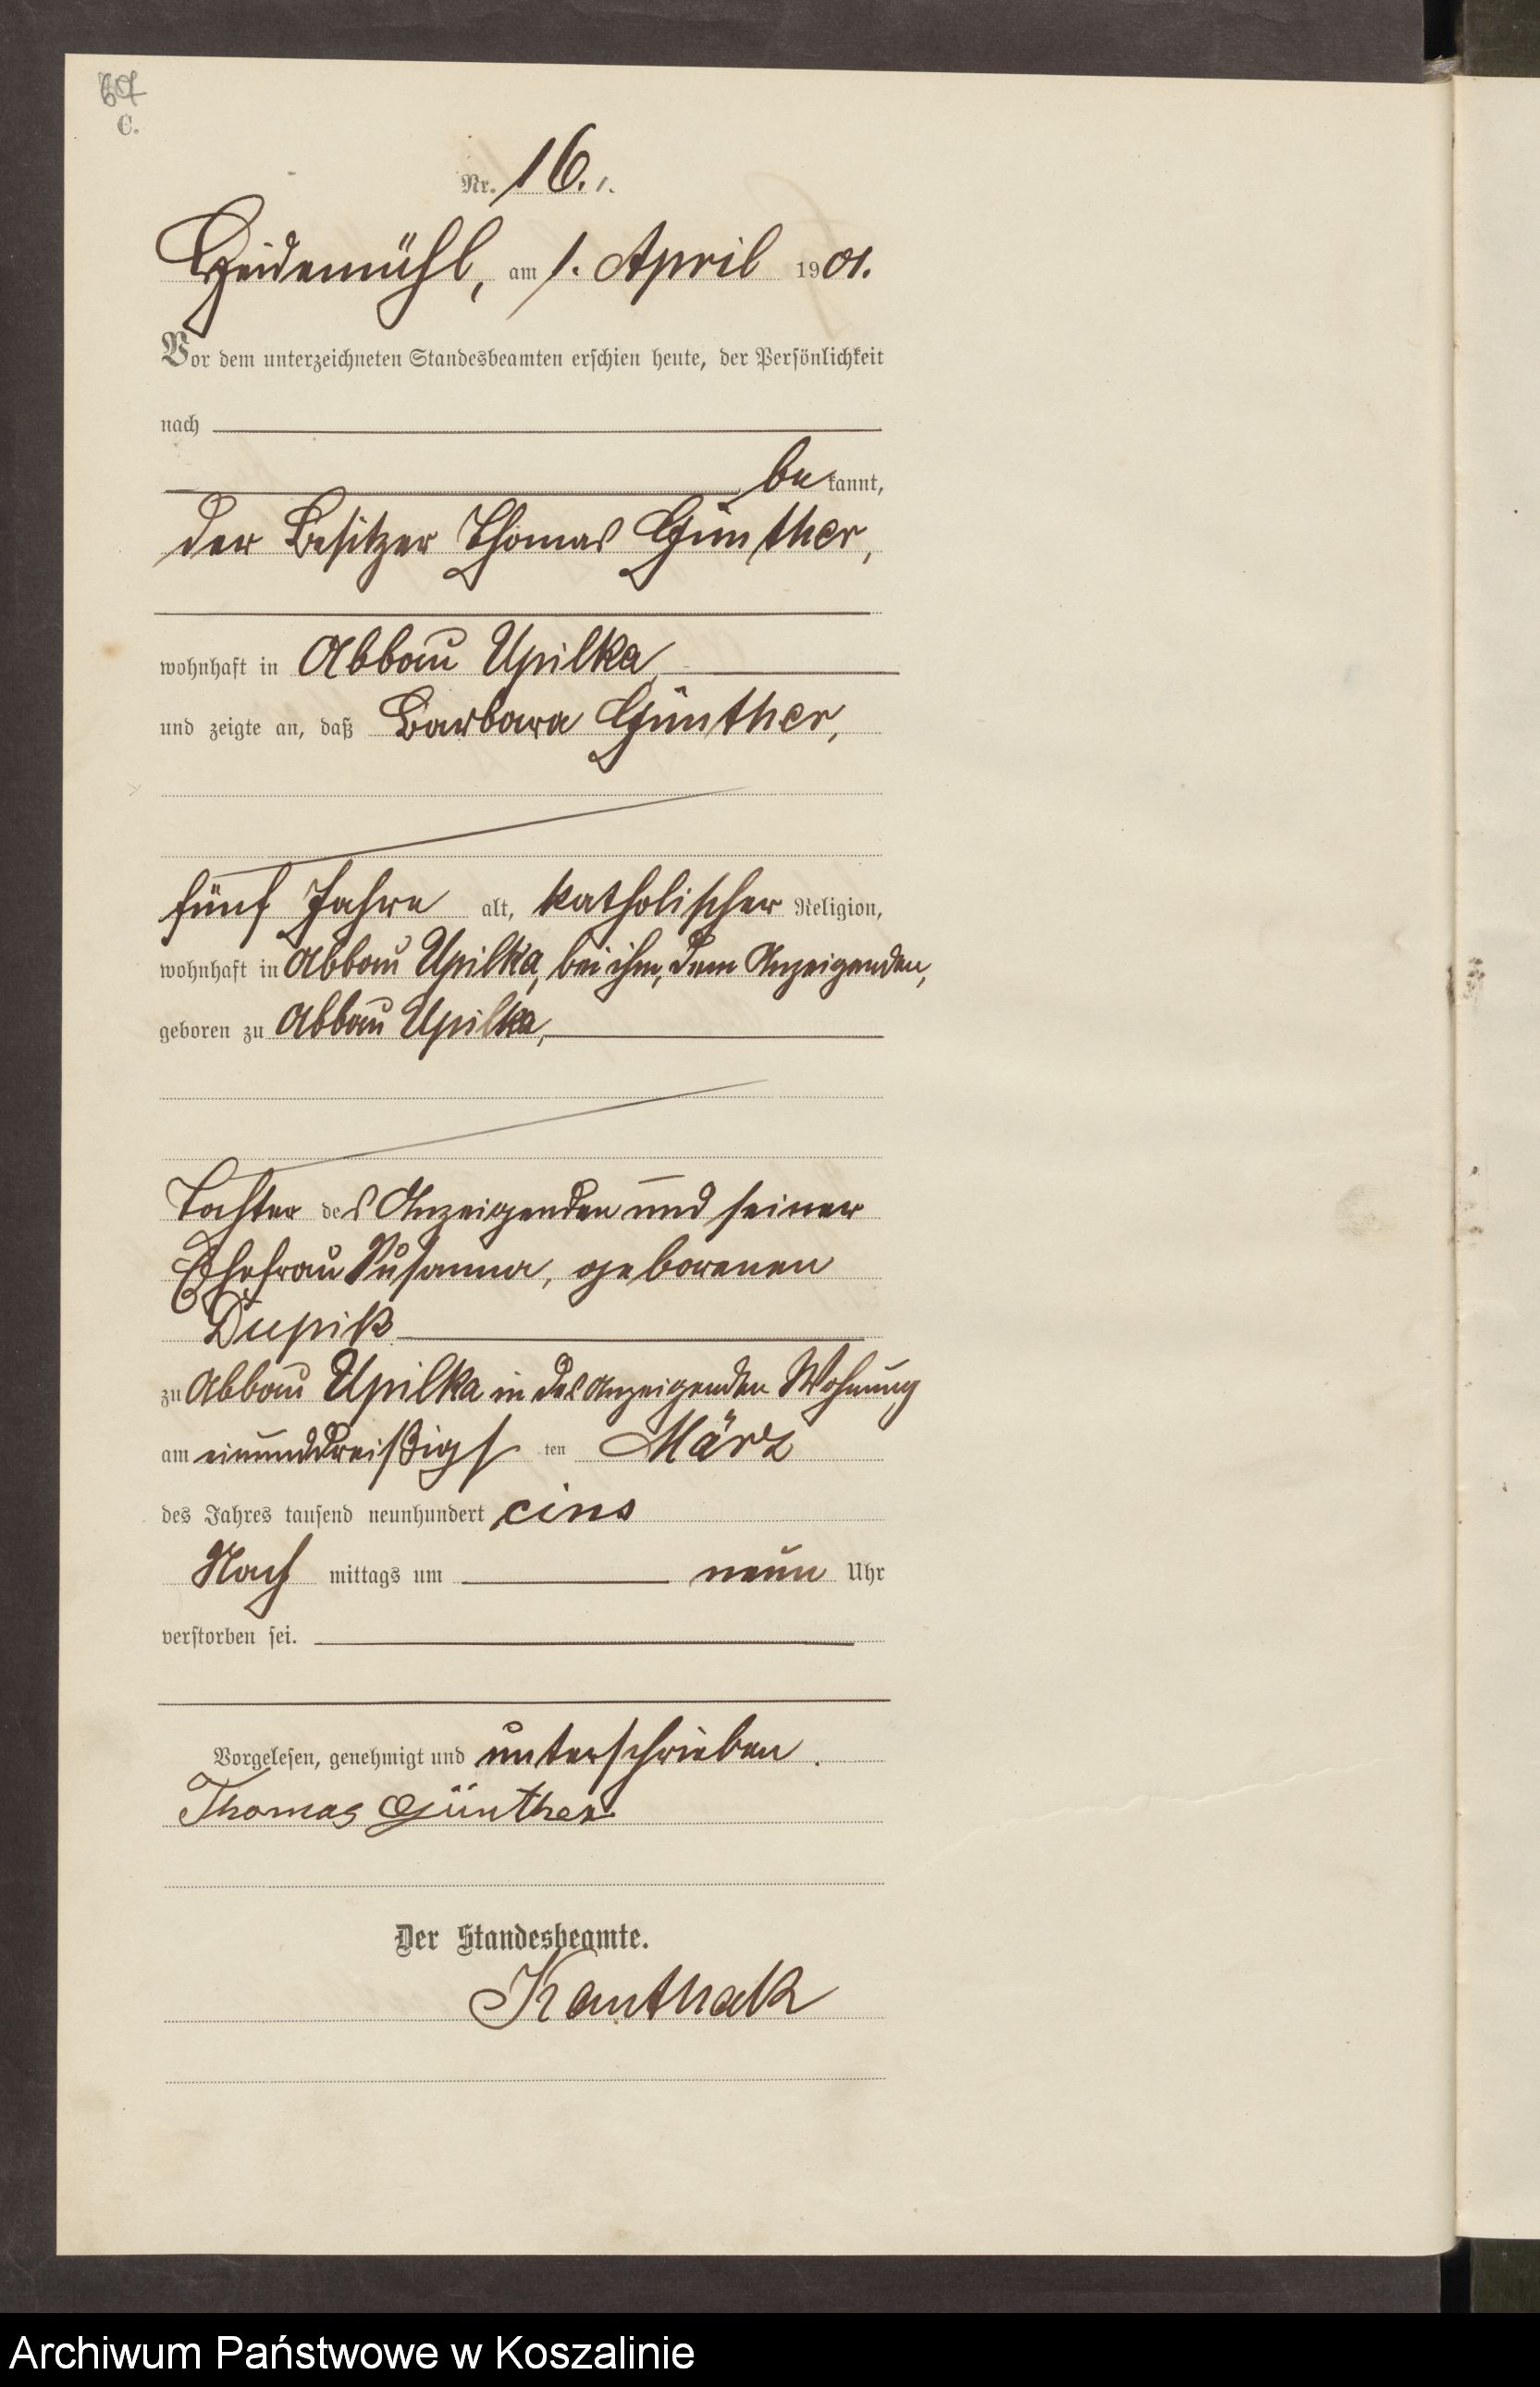 C.
Nr. 16.
Heidemühl, am 1. April 1901.
Vor dem unterzeichneten Standesbeamten erschien heute, der Persönlichkeit
nach
bekannt,
der Besitzer Thomas Günther,
wohnhaft in Abbau Upilka,
und zeigte an, daß Barbara Günther,
fünf Jahre alt, katholischer Religion,
wohnhaft in Abbau Upilka, bei ihm, dem Anzeigenden,
geboren zu Abbau Upilka,
Tochter des Anzeigenden und seiner
Ehefrau Susanna, geborenen
zu Abbau Upilka in des Anzeigenden Wohnung
am einunddreißigsten März
des Jahres tausend neunhundert eins
Nach mittags um neun Uhr
verstorben sei.
Vorgelesen, genehmigt und unterschrieben.
Thomas Günther
Der Standesbeamte.
Kanthak
Archiwum Państwowe w Koszalinie